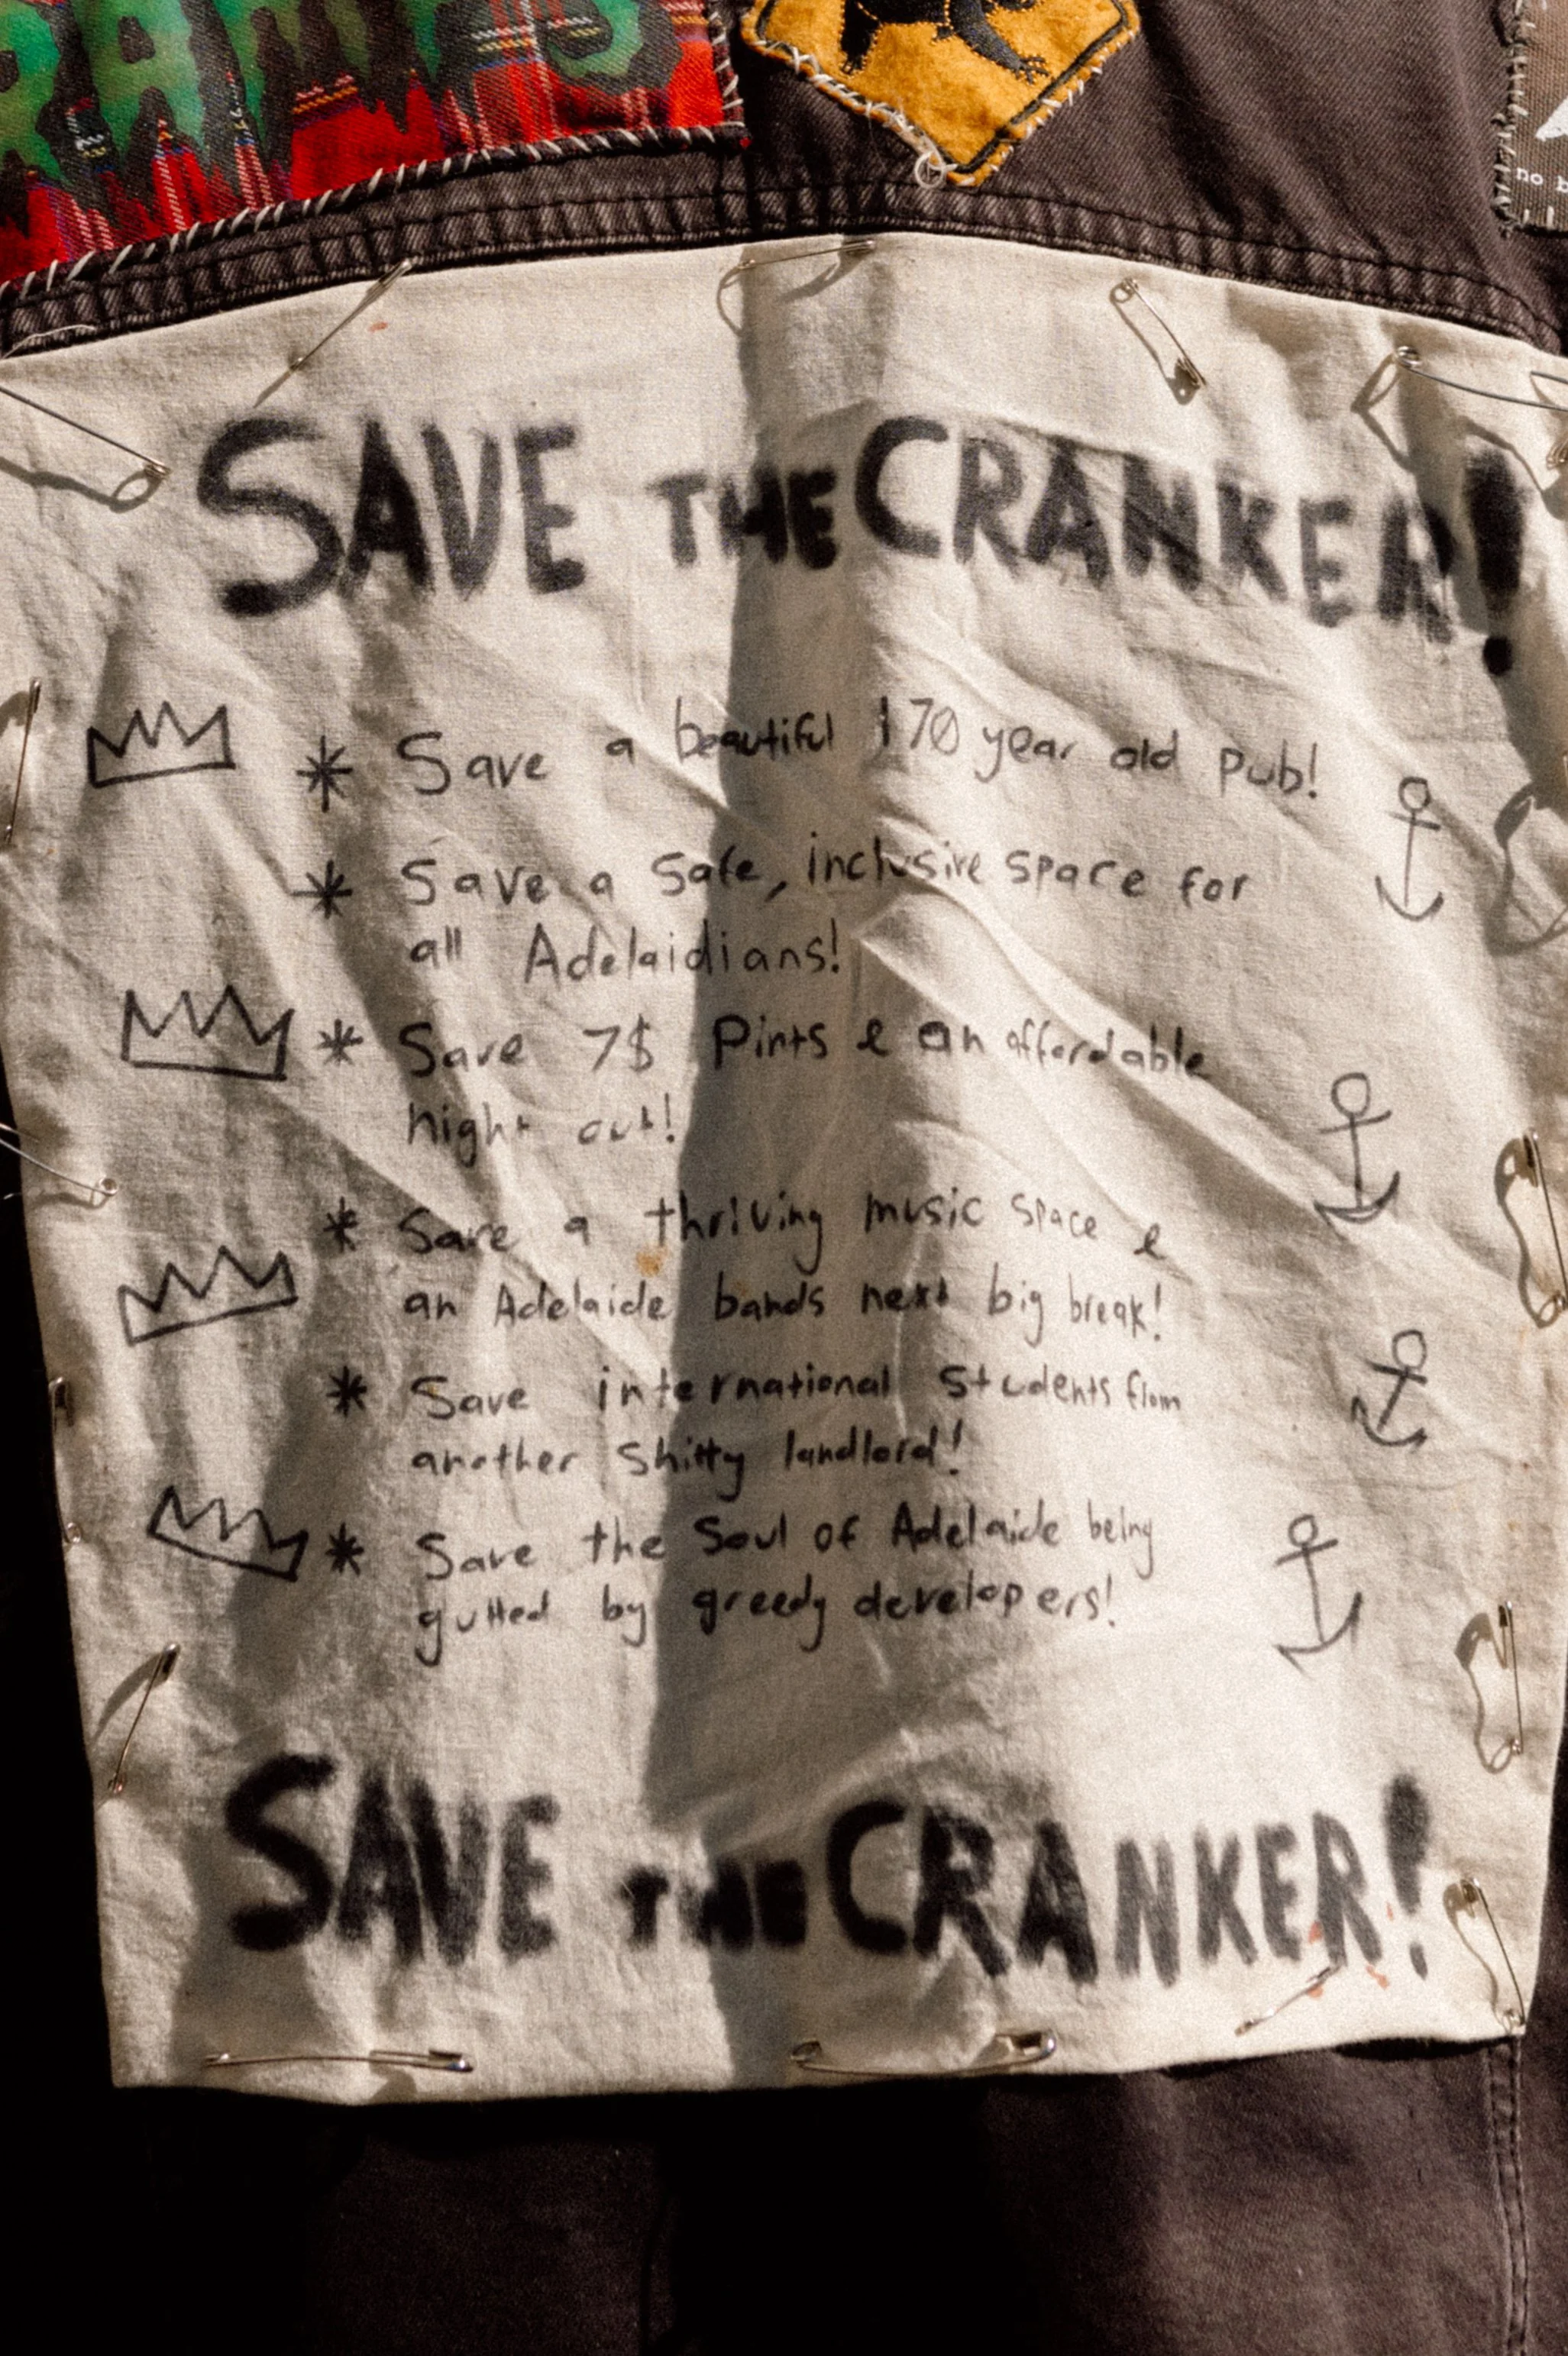 RAMPS
no b
SAVE THE CRANKER!
* Save a beautiful 170 year old pub!
* Save a Safe, inclusive space for
all Adelaidians!
* Save 7$ Pints & an affordable
night out!
* Save a thriving music space &
an Adelaide bands next big break!
* Save international students from
another shitty landlord!
* Save the Soul of Adelaide being
gutted by greedy developers!
SAVE THE CRANKER!